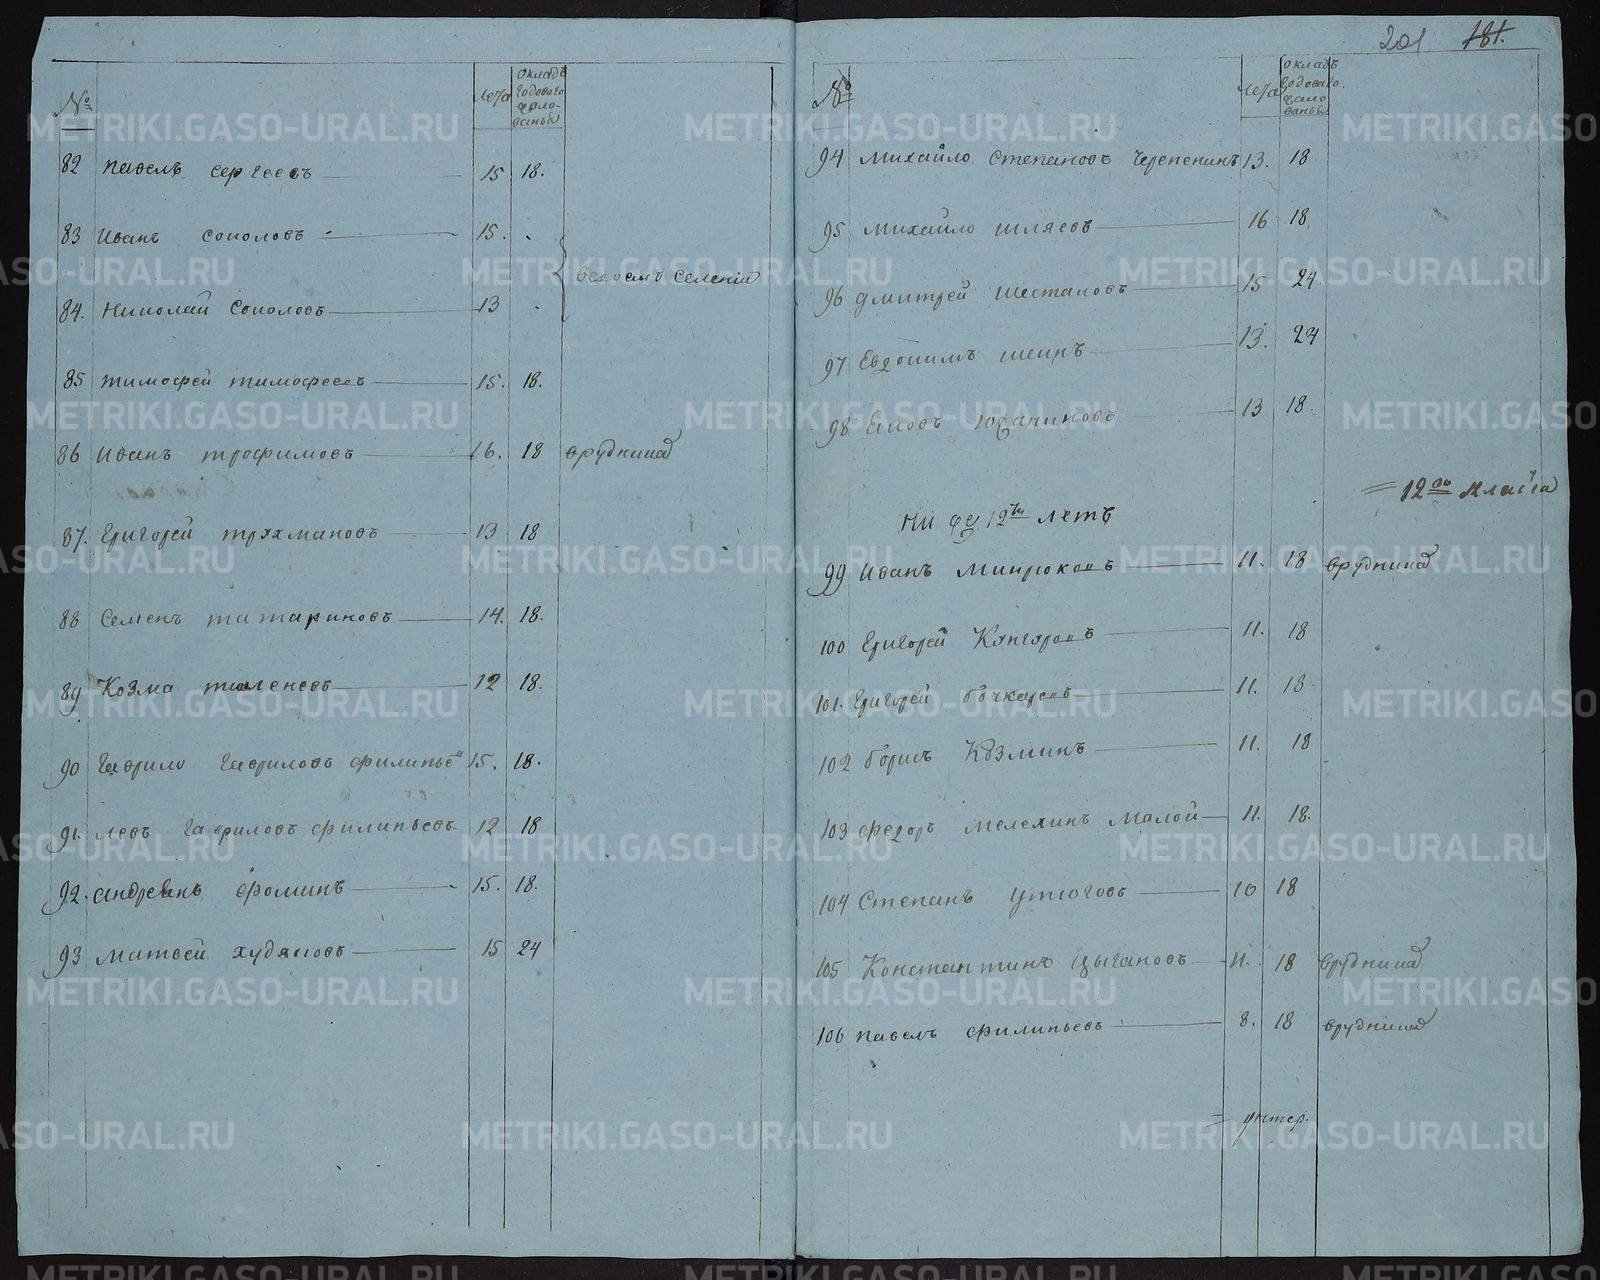 201 181.
№ лета окладъ годоваго жалованья
82 Павелъ Сергеевъ 15 18.
83 Иванъ Соколовъ 15.
селенiи
84. Николай Соколовъ 13
85 Тимофей Тимофеевъ 15. 18.
86 Иванъ Трофимовъ 16. 18 врудникѣ
87. Григорей 13 18
88 Семенъ Татариновъ 14. 18.
89 Козма 12 18.
90 Гаврило Гавриловъ Филипье 15. 18.
91. Левъ Гавриловъ Филипьевъ 12 18
92. Андреянъ Фоминъ 15. 18.
93 Матвей Худяковъ 15 24
№ лета окладъ годоваго жалованья
94 Михайло Степановъ Черепенинъ 13. 18
95 Михайло Шляевъ 16 18.
96 Дмитрей Шестаковъ 15 24
97 Евдокимъ Шеинъ 13. 24
98 Яковъ 13 18.
= 12го класса
Ниже 12ти летъ
99 Иванъ 11. 18 врудникѣ
100 Григорей 11. 18
101. Григорей Бочкаревъ 11. 18
102 Борисъ Козминъ 11. 18
103 Федоръ Мелехинъ Малой 11. 18.
104 Степанъ Утюговъ 10 18
105 Константинъ Цыгановъ 11. 18 врудникѣ
106 Павелъ Филипьевъ 8. 18 врудникѣ
METRIKI.GASO-URAL.RU